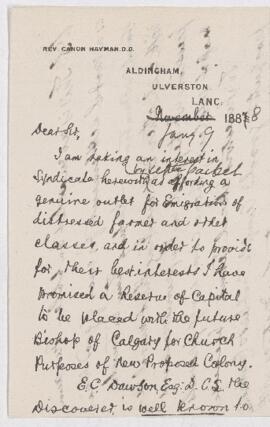 REV. CANON HAYMAN. D.D.
ALDINGHAM,
ULVERSTON.
LANC.
November 1887 8
Jany 9
Dear Sir,
I am taking an interest in
by separate packet
Syndicate herewith as affording a
genuine outlet for Emigration of
distressed farmer and other
classes, and in order to provide
for their best interests I have
promised a Reserve of Capital
to be placed with the future
Bishop of Calgary for Church
Purposes of New Proposed Colony.
E.C. Dawson Esq: D.C.S. the
Discoverer is well known to